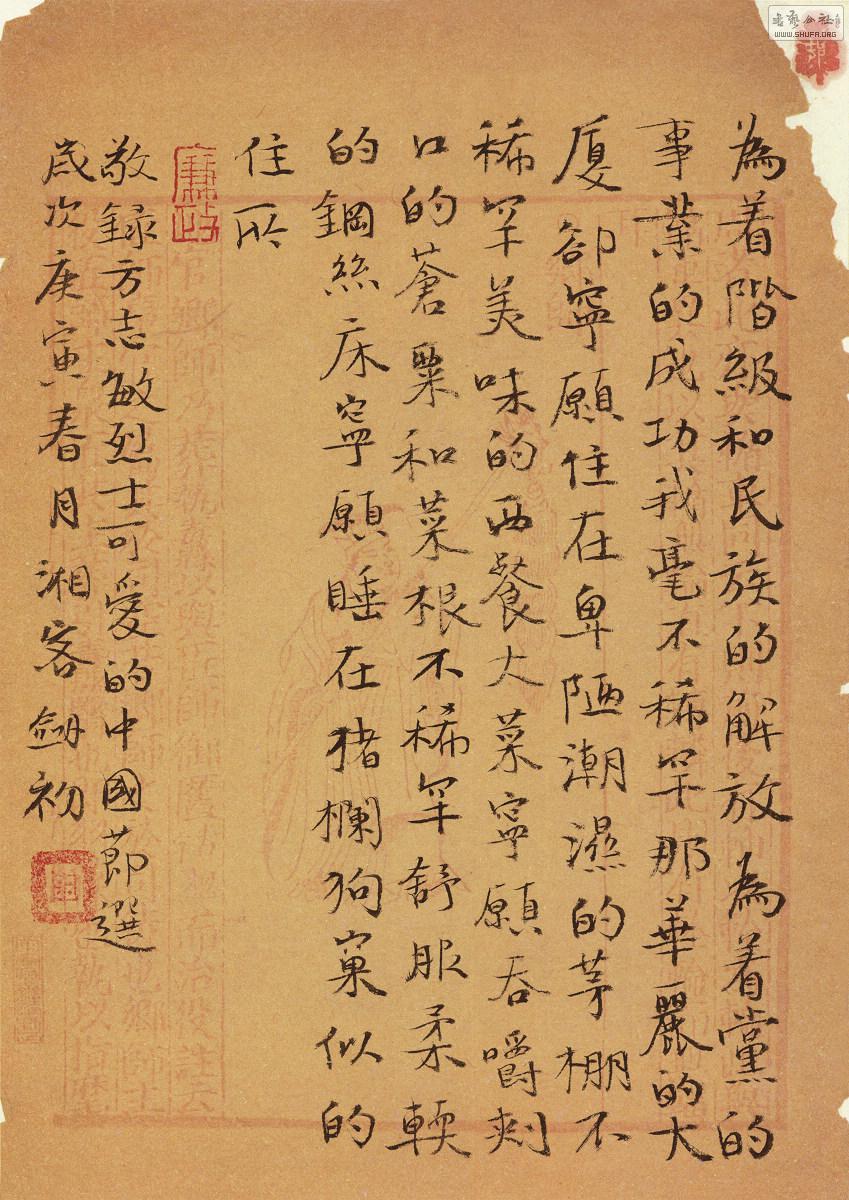 為着階級和民族的解放為着黨的
事業的成功我毫不稀罕那華麗的大
厦卻寧願住在卑陋潮濕的茅棚不
稀罕美味的西餐大菜寧願吞嚼刺
口的蒼粟和菜根不稀罕舒服柔輭
的鋼絲床寧願睡在猪欄狗窠似的
住所
廉政
敬録方志敏烈士可愛的中國節選
歲次庚寅春月湘客劔初
WWW.SHUFA.ORG